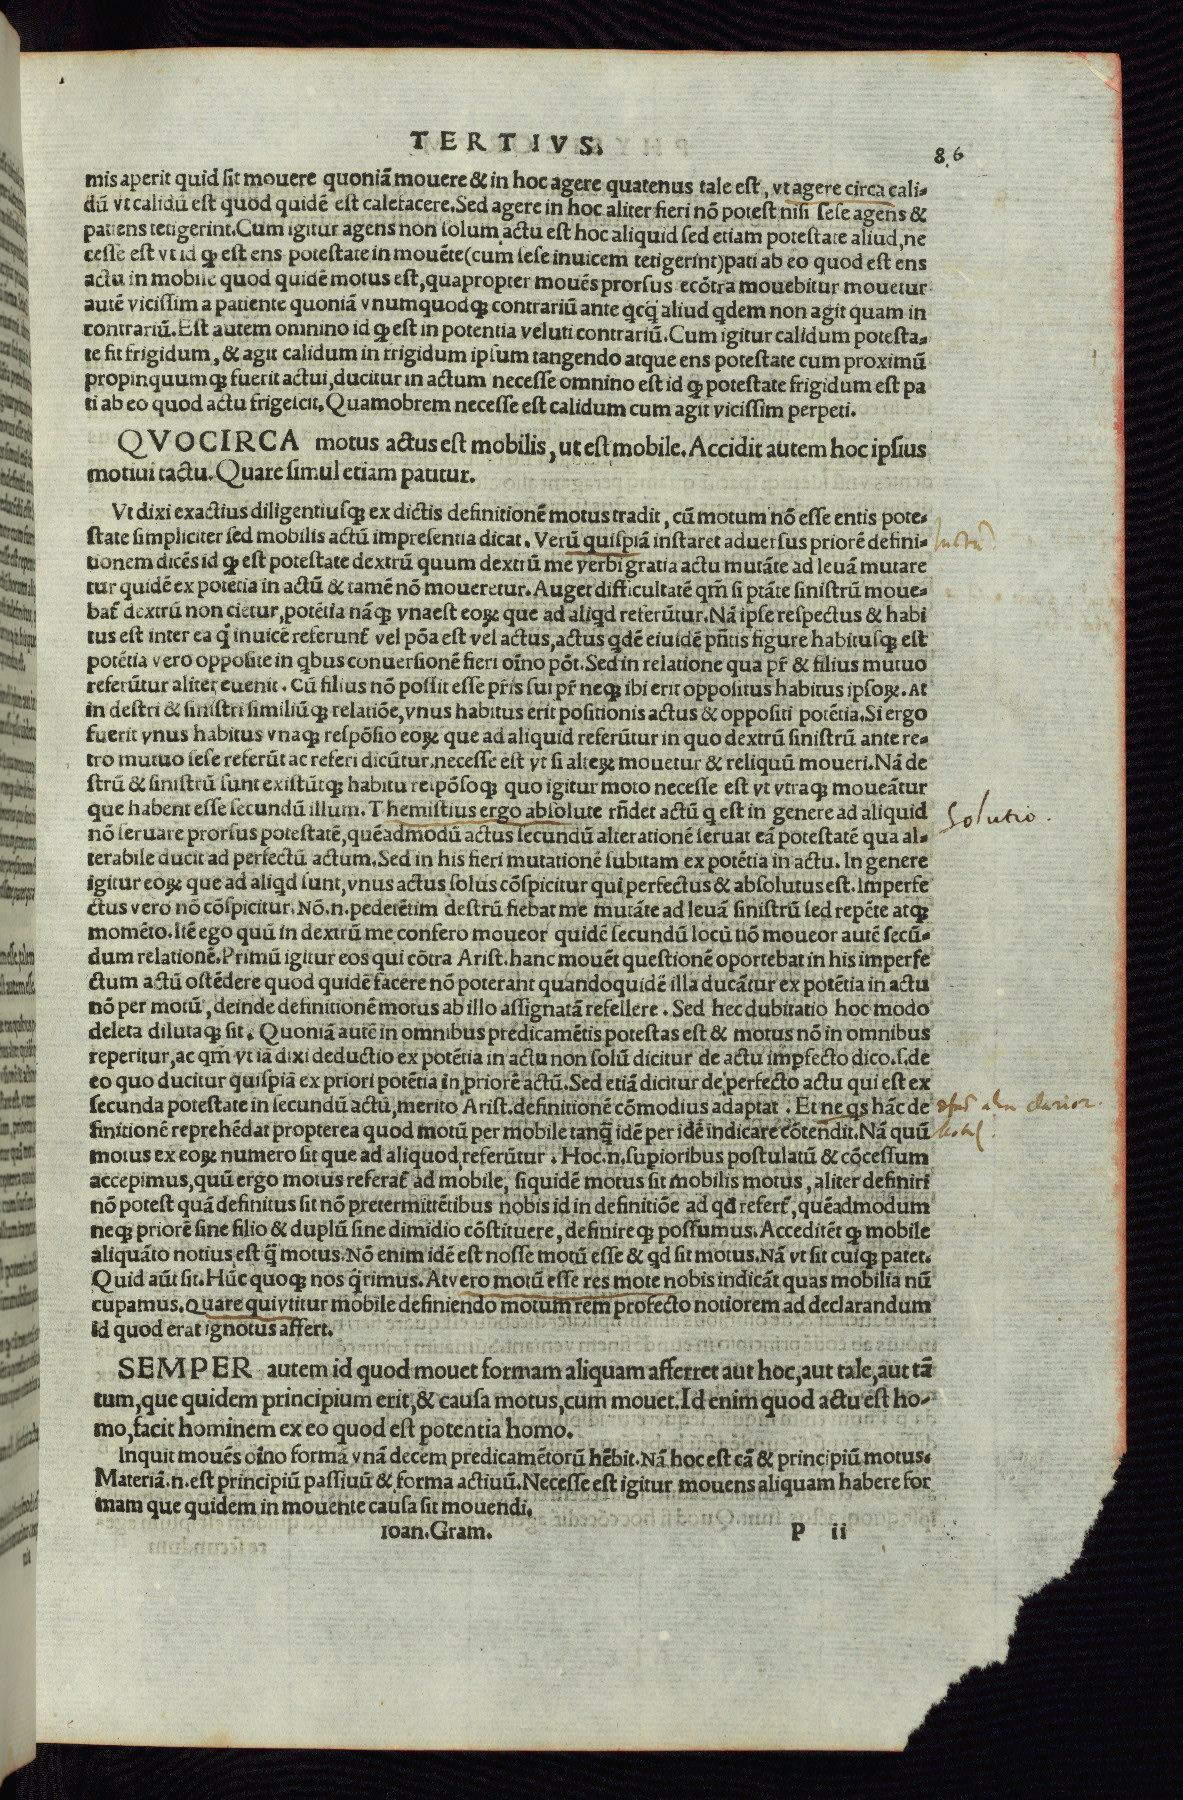 TERTIVS.
86
mis aperit quid sit mouere quoniã mouere & in hoc agere quatenus tale est, vt agere circa cali-
dũ vt calidũ est quod quidẽ est calefacere. Sed agere in hoc aliter fieri nõ potest nisi sese agens &
patiens tetigerint. Cum igitur agens non solum actu est hoc aliquid sed etiam potestate aliud, ne
cesse est vt id ꝙ est ens potestate in mouẽte (cum sese inuicem tetigerint) pati ab eo quod est ens
actu in mobile quod quidẽ motus est, quapropter mouẽs prorsus ecõtra mouebitur mouetur
autẽ vicissim a patiente quoniã vnumquodqꝫ contrariũ ante qcq̃ aliud qdem non agit quam in
contrariũ. Est autem omnino id ꝙ est in potentia veluti contrariũ. Cum igitur calidum potesta-
te fit frigidum, & agit calidum in frigidum ipsum tangendo atque ens potestate cum proximũ
propinquumqꝫ fuerit actui, ducitur in actum necesse omnino est id ꝙ potestate frigidum est pa
ti ab eo quod actu frigescit. Quamobrem necesse est calidum cum agit vicissim perpeti.
QVOCIRCA motus actus est mobilis, ut est mobile. Accidit autem hoc ipsius
motiui tactu. Quare simul etiam patitur.
Vt dixi exactius diligentiusqꝫ ex dictis definitionẽ motus tradit, cũ motum nõ esse entis pote-
state simpliciter sed mobilis actũ impresentia dicat. Verũ quispiã instaret aduersus priorẽ defini-
tionem dicẽs id ꝙ est potestate dextrũ quum dextrũ me verbi gratia actu mutãte ad leuã mutare
tur quidẽ ex potẽtia in actũ & tamẽ nõ moueretur. Auget difficultatẽ qm̃ si ptãte sinistrũ moue-
bat̃ dextrũ non cietur, potẽtia nãqꝫ vna est eoꝝ que ad aliqd referũtur. Nã ipse respectus & habi
tus est inter ea q̃ inuicẽ referunt̃ vel põa est vel actus, actus qdẽ eiusdẽ pñtis figure habitusqꝫ est
potẽtia vero opposite in qbus conuersionẽ fieri oĩno põt. Sed in relatione qua pr̃ & filius mutuo
referũtur aliter euenit. Cũ filius nõ possit esse pr̃is sui pr̃ neqꝫ ibi erit oppositus habitus ipsoꝝ. At
in destri & sinistri similiũqꝫ relatiõe, vnus habitus erit positionis actus & oppositi potẽtia. Si ergo
fuerit vnus habitus vnaqꝫ respõsio eoꝝ que ad aliquid referũtur in quo dextrũ sinistrũ ante re-
tro mutuo sese referũt ac referi dicũtur, necesse est vt si alteꝝ mouetur & reliquũ moueri. Nã de
strũ & sinistrũ sunt existũtqꝫ habitu respõsoqꝫ quo igitur moto necesse est vt vtraqꝫ moueãtur
que habent esse secundũ illum. Themistius ergo absolute rñdet actũ q est in genere ad aliquid
nõ seruare prorsus potestatẽ, quẽadmodũ actus secundũ alterationẽ seruat eã potestatẽ qua al-
terabile ducit ad perfectũ actum. Sed in his fieri mutationẽ subitam ex potẽtia in actu. In genere
igitur eoꝝ que ad aliqd sunt, vnus actus solus cõspicitur qui perfectus & absolutus est. Imperfe
ctus vero nõ cõspicitur. Nõ.n. pedetẽtim destrũ fiebat me mutãte ad leuã sinistrũ sed repẽte atqꝫ
momẽto. Itẽ ego quũ in dextrũ me confero moueor quidẽ secundũ locũ nõ moueor autẽ secũ-
dum relationẽ. Primũ igitur eos qui cõtra Arist. hanc mouẽt questionẽ oportebat in his imperfe
ctum actũ ostẽdere quod quidẽ facere nõ poterant quandoquidẽ illa ducãtur ex potẽtia in actu
nõ per motũ, deinde definitionẽ motus ab illo assignatã refellere. Sed hec dubitatio hoc modo
deleta dilutaqꝫ sit. Quoniã autẽ in omnibus predicamẽtis potestas est & motus nõ in omnibus
reperitur, ac qm̃ vt iã dixi deductio ex potẽtia in actu non solũ dicitur de actu imꝑfecto dico.s. de
eo quo ducitur quispiã ex priori potẽtia in priorẽ actũ. Sed etiã dicitur de perfecto actu qui est ex
secunda potestate in secundũ actũ, merito Arist. definitionẽ cõmodius adaptat. Et ne qs hãc de
finitionẽ reprehẽdat propterea quod motũ per mobile tanq̃ idẽ per idẽ indicare cõtendit. Nã quũ
motus ex eoꝝ numero sit que ad aliquod referũtur. Hoc.n. supioribus postulatũ & cõcessum
accepimus, quũ ergo motus referat̃ ad mobile, siquidẽ motus sit mobilis motus, aliter definiri
nõ potest quã definitus sit nõ pretermittẽtibus nobis id in definitiõe ad qd refert̃, quẽadmodum
neqꝫ priorẽ sine filio & duplũ sine dimidio cõstituere, definireqꝫ possumus. Acceditẽt ꝙ mobile
aliquãto notius est q̃ motus. Nõ enim idẽ est nosse motũ esse & qd sit motus. Nã vt sit cuiqꝫ patet.
Quid aũt sit. Hũc quoqꝫ nos q̃rimus. At vero motũ esse res mote nobis indicãt quas mobilia nũ
cupamus. Quare qui vtitur mobile definiendo motum rem profecto notiorem ad declarandum
id quod erat ignotus affert.
SEMPER autem id quod mouet formam aliquam afferret aut hoc, aut tale, aut tã
tum, que quidem principium erit, & causa motus, cum mouet. Id enim quod actu est ho-
mo, facit hominem ex eo quod est potentia homo.
Inquit mouẽs oĩno formã vnã decem predicamẽtorũ hẽbit. Nã hoc est cã & principiũ motus.
Materiã.n. est principiũ passiuũ & forma actiuũ. Necesse est igitur mouens aliquam habere for
mam que quidem in mouente causa sit mouendi.
Ioan. Gram. P ii
Solutio.
clarior.